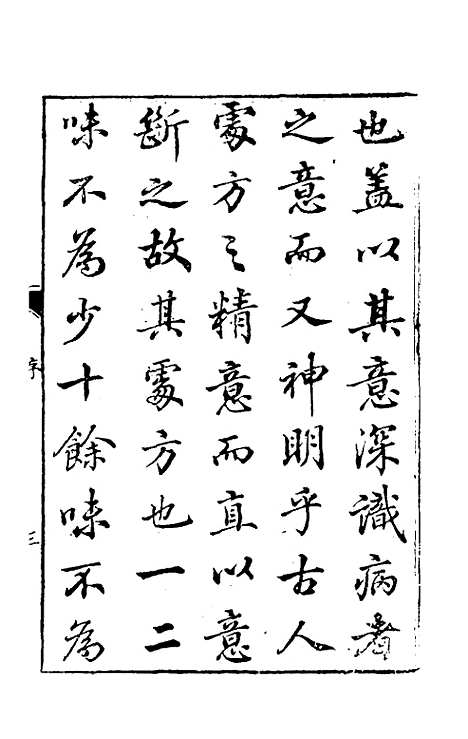 也蓋以其意深識病者
之意而又神明乎古人
處方之精意而直以意
斷之故其處方也一二
味不為少十餘味不為
序
三